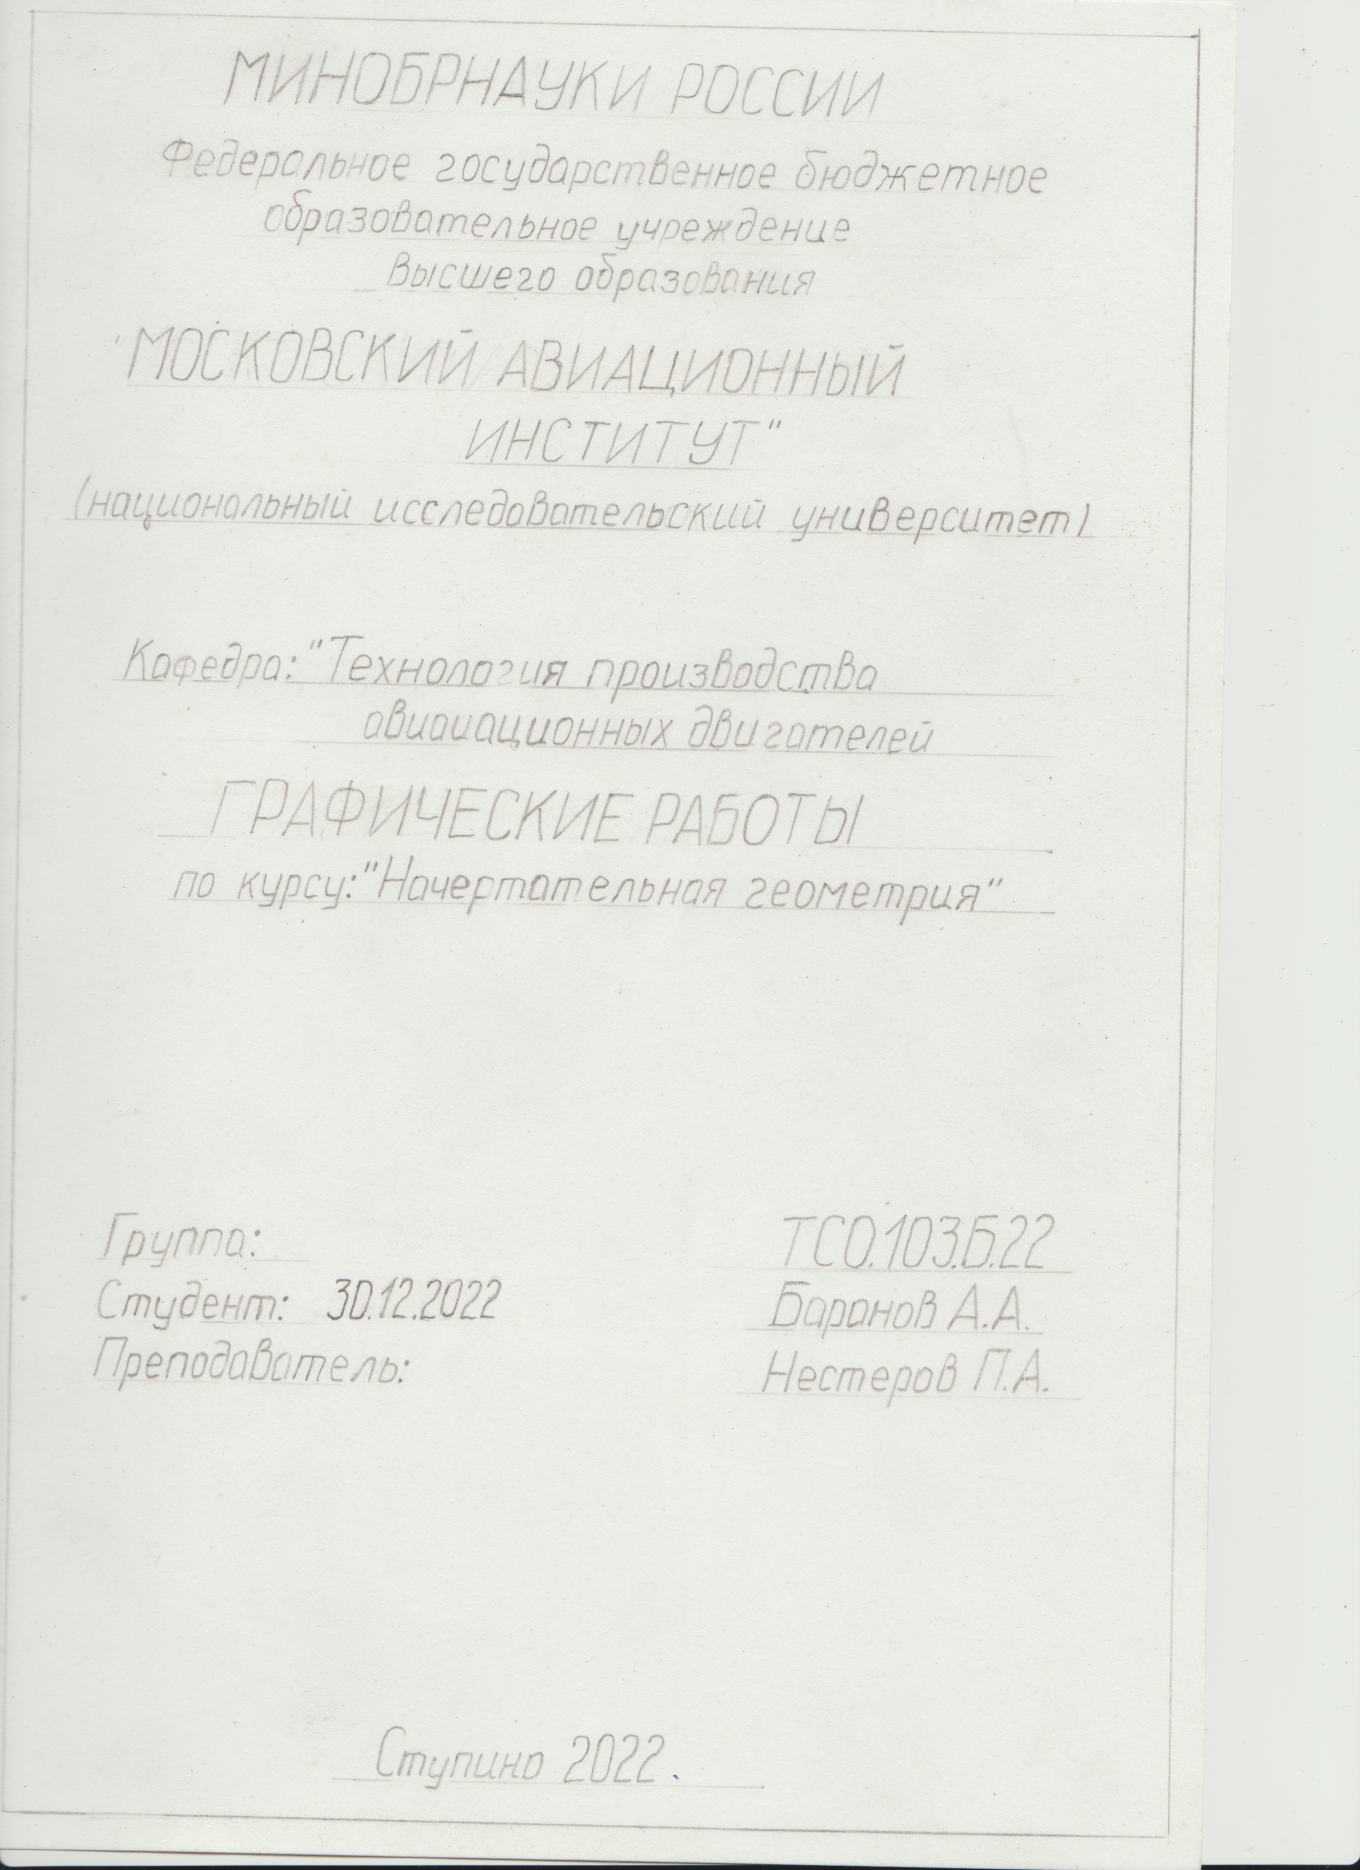 МИНОБРНАУКИ РОССИИ
Федеральное государственное бюджетное
образовательное учреждение
высшего образования
"МОСКОВСКИЙ АВИАЦИОННЫЙ
ИНСТИТУТ"
(национальный исследовательский университет)
Кафедра: "Технология производства
авиаиационных двигателей
ГРАФИЧЕСКИЕ РАБОТЫ
по курсу: "Начертательная геометрия"
Группа: ТСО.103.Б.22
Студент: 30.12.2022 Баранов А.А.
Преподаватель: Нестеров П.А.
Ступино 2022.